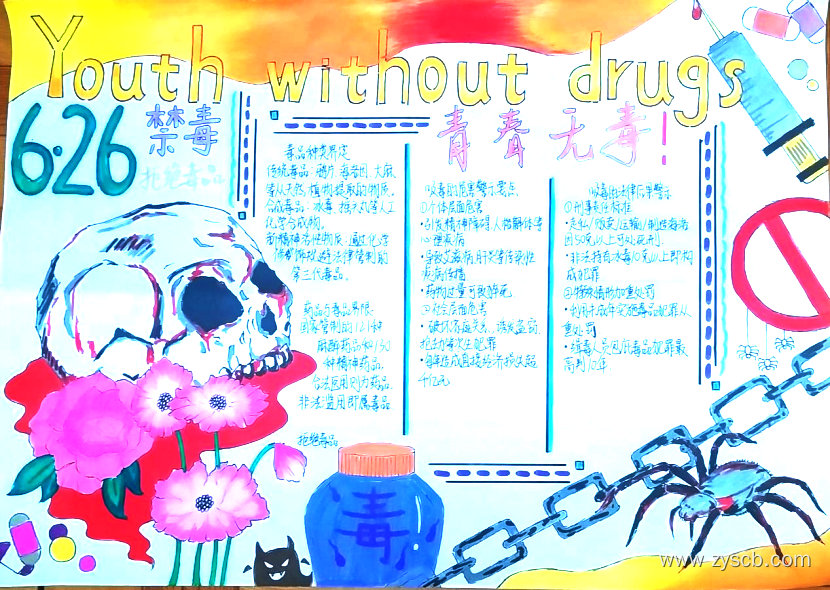 Youth without drugs
6·26
禁毒
拒绝毒品
青春无毒!
毒品种类界定
传统毒品:鸦片、海洛因、大麻
等从天然植物提取的物质。
合成毒品:冰毒、摇头丸等人工
化学合成物。
新精神活性物质:通过化学
修饰规避法律管制的
第三代毒品。
药品与毒品界限:
国家管制的121种
麻醉药品和130
种精神药品,
合法医用则为药品
非法滥用即属毒品
拒绝毒品
吸毒的危害警示要点
①个体层面危害
·引发精神障碍人格解体等
心理疾病
·导致艾滋病肝炎等传染性
疾病传播
·药物过量可致猝死
②社会层面危害
·破坏家庭关系,诱发盗窃、
抢劫等次生犯罪
·每年造成直接经济损失超
千亿元
吸毒的法律后果警示
①刑事责任标准
·走私/贩卖/运输/制造海洛
因50克以上可处死刑。
·非法持有冰毒10克以上即构
成犯罪
②特殊情形加重处罚
·利用未成年实施毒品犯罪从
重处罚
毒
www.zyscb.com